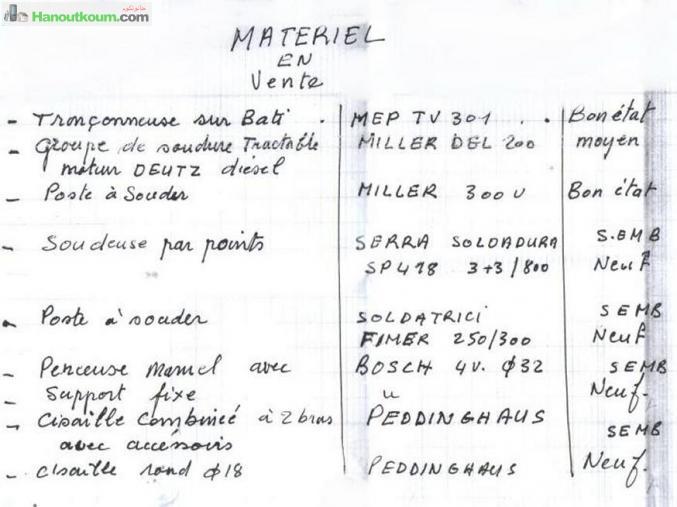 حانوتكم
Hanoutkoum.com
MATERIEL
EN
Vente
- Tronçonneuse sur Bati . MEP TV 301 . . Bon état
- Groupe de soudure Tractable MILLER DEL 200 moyen
moteur DEUTZ diesel
- Poste à Souder MILLER 300 U Bon état
- Soudeuse par points SERRA SOLDADURA S.EMB
SP418 3+3/800 Neuf
- Poste à souder SOLDATRICI SEMB
FIMER 250/300 Neuf
- Perceuse Manuel avec BOSCH 4V. φ32 SEMB
- Support fixe " Neuf.
- Cisaille Combineé à 2 bras PEDDINGHAUS SEMB
avec accéssoirs
- cisaille rond φ18 PEDDINGHAUS Neuf.